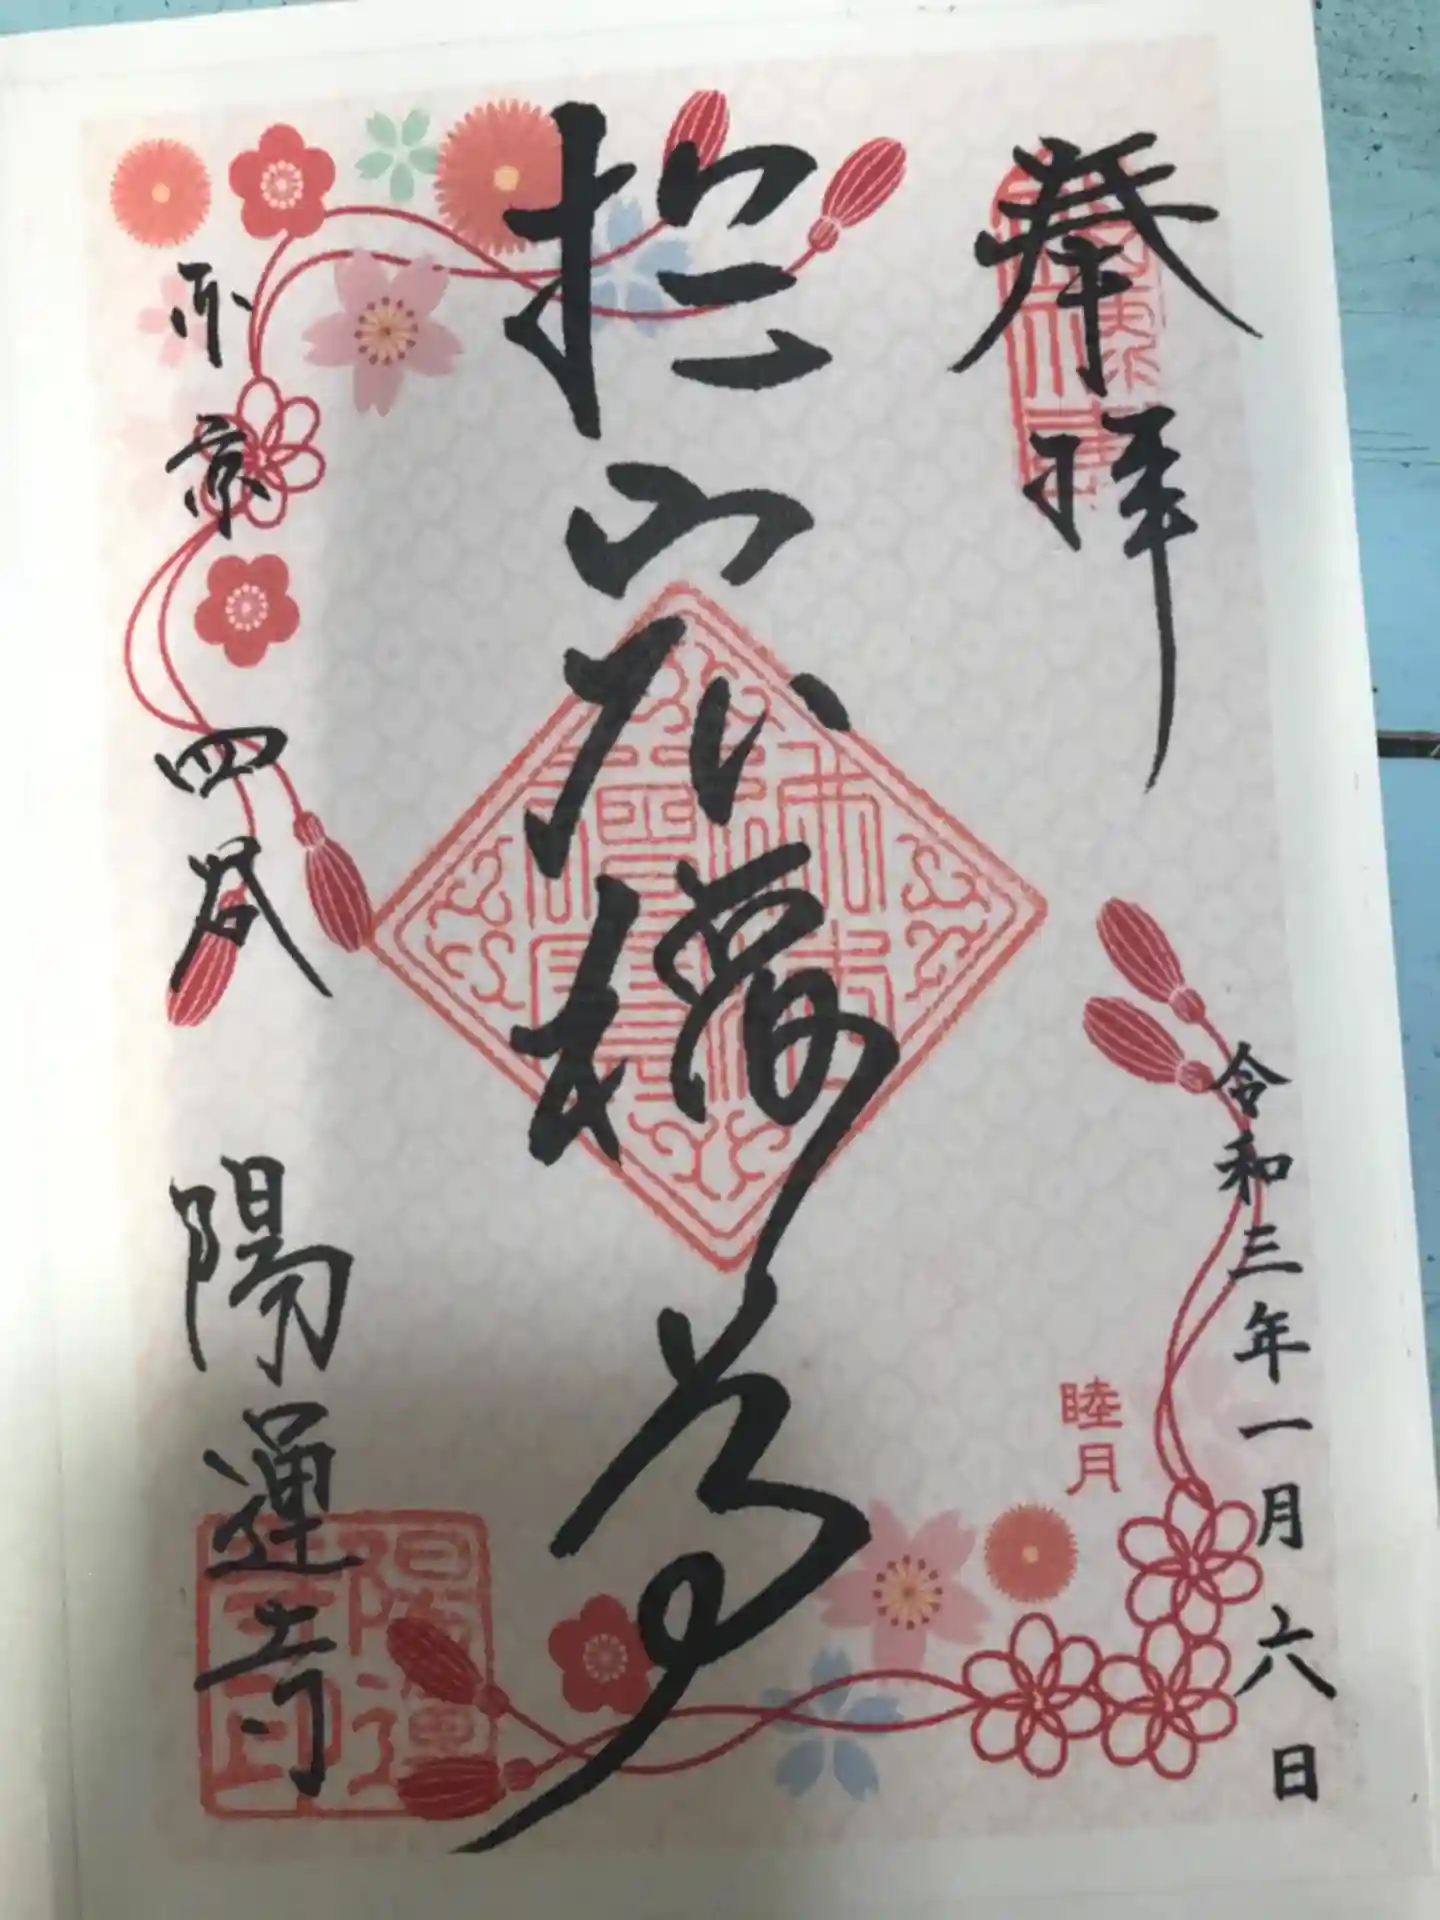 奉拝
令和三年一月六日
睦月
於岩
東京四谷 陽運寺
陽運寺印